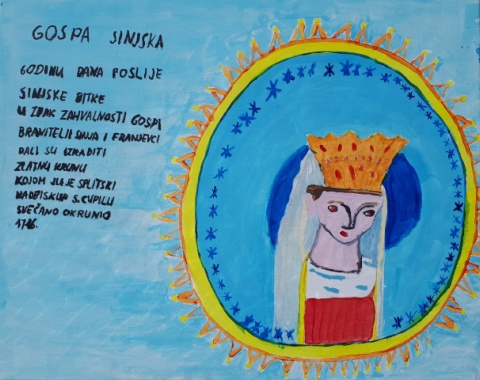 GOSPA SINJSKA
GODINU DANA POSLIJE
SINJSKE BITKE
U ZNAK ZAHVALNOSTI GOSPI
BRANITELJI SINJA I FRANJEVCI
DALI SU IZRADITI
ZLATNU KRUNU
KOJOM JU JE SPLITSKI
NADBISKUP S. CUPILLI
SVEČANO OKRUNIO
1716.